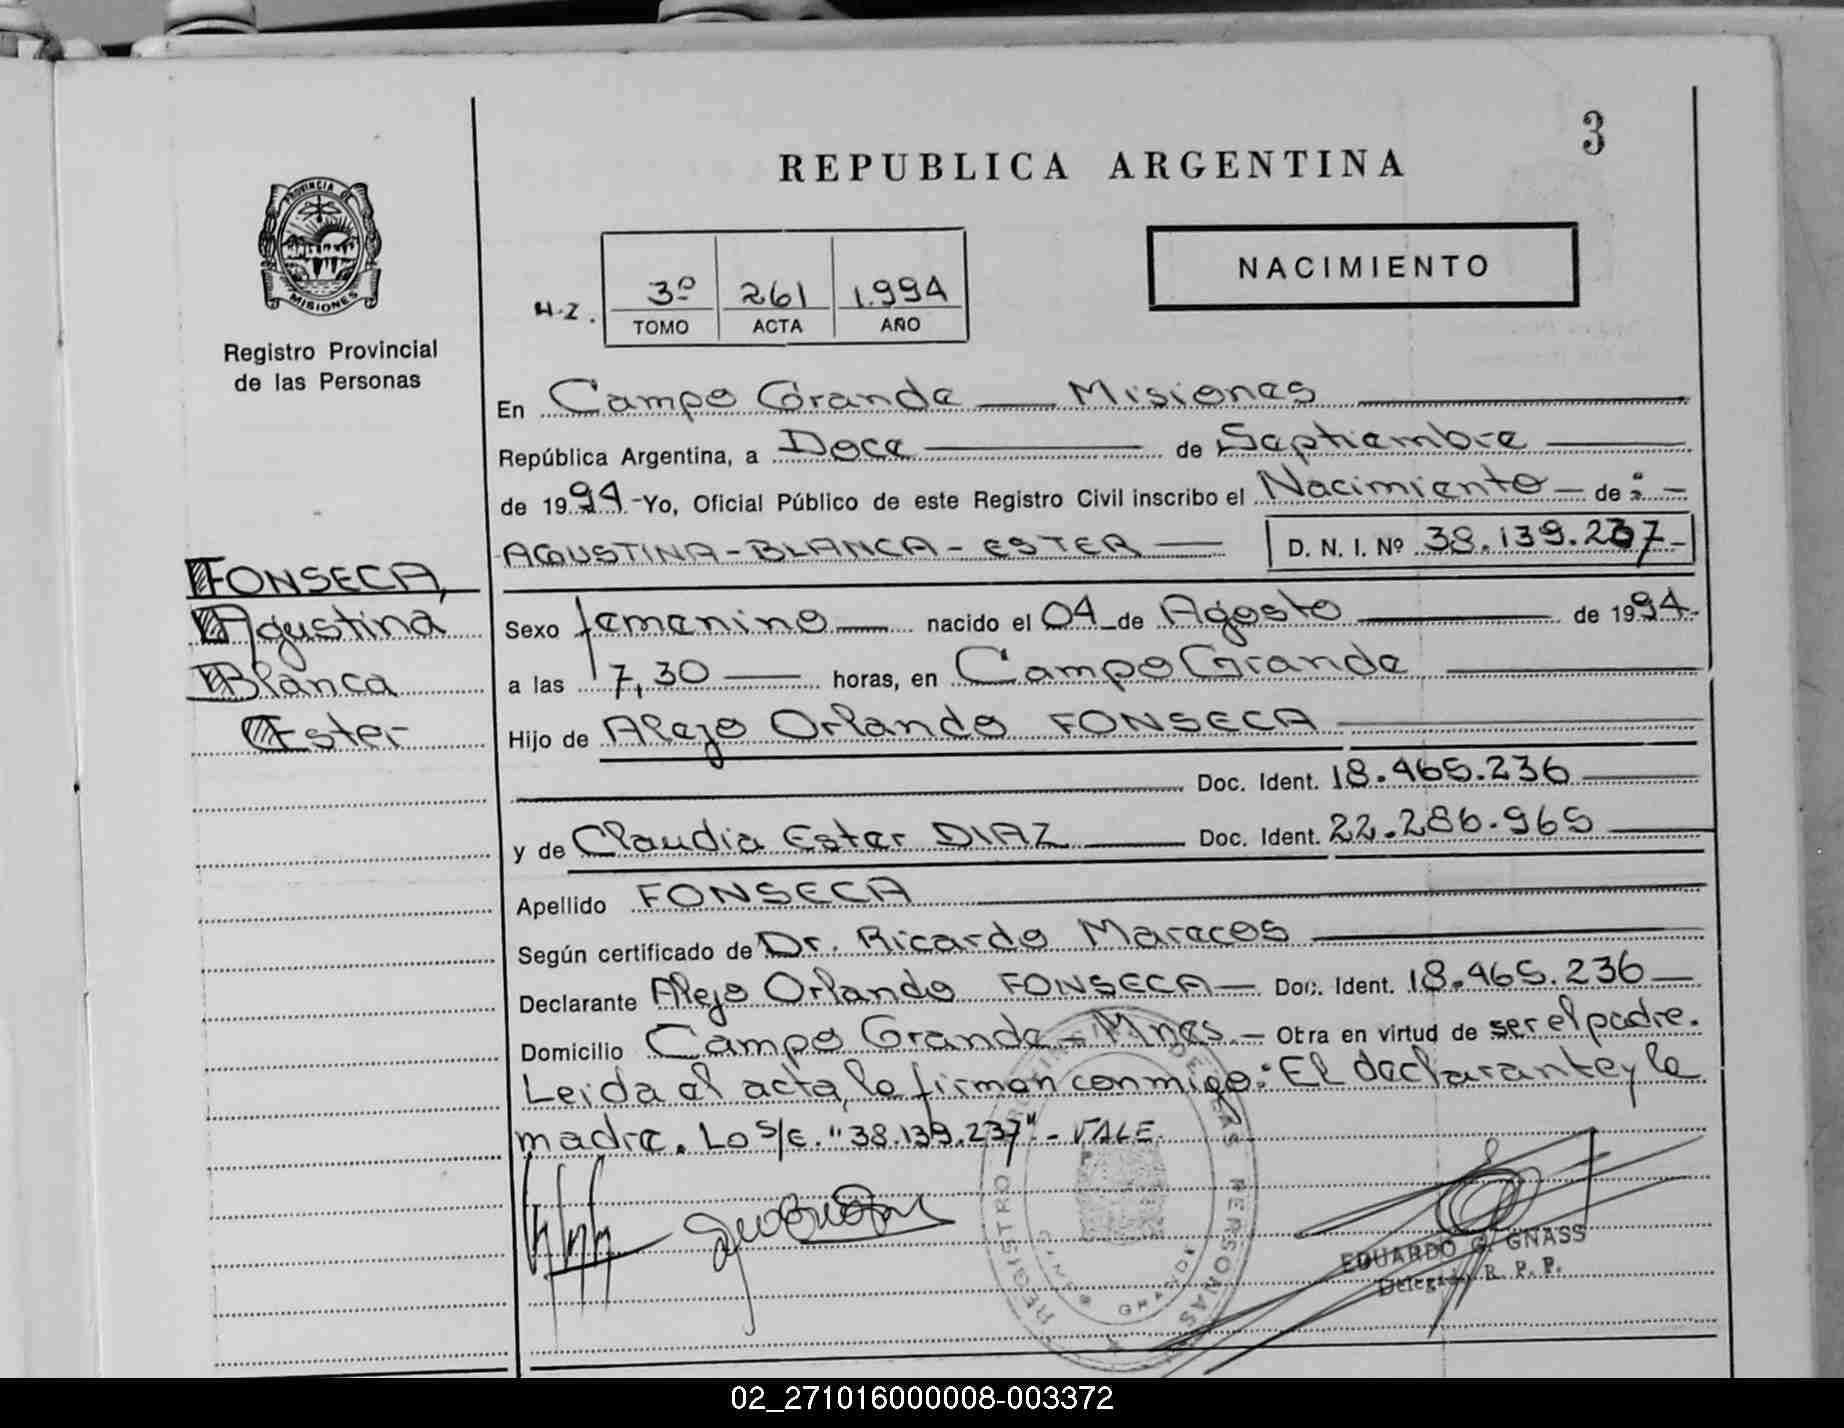 3
REPUBLICA ARGENTINA
PROVINCIA DE
MISIONES
Registro Provincial
de las Personas
H-Z.
3º 261 1.994
TOMO ACTA AÑO
NACIMIENTO
En Campo Grande — Misiones
República Argentina, a Doce de Septiembre
de 1994 - Yo, Oficial Público de este Registro Civil inscribo el Nacimiento — de : -
AGUSTINA - BLANCA - ESTER — D. N. I. Nº 38.139.237-
FONSECA,
Agustina
Blanca
Ester
Sexo femenino — nacido el 04 de Agosto de 1994.
a las 7,30 horas, en Campo Grande
Hijo de Alejo Orlando FONSECA
Doc. Ident. 18.465.236
y de Claudia Ester DIAZ Doc. Ident. 22.286.965
Apellido FONSECA
Según certificado de Dr. Ricardo Marecos
Declarante Alejo Orlando FONSECA — Doc. Ident. 18.465.236
Domicilio Campo Grande - Mnes. - Otra en virtud de ser el padre.
Leida el acta, la firman conmigo: El declarante y la
madre. Lo s/e. "38.139.237" - VALE.
REGISTRO DE LAS PERSONAS
GRANDE
EDUARDO G. GNASS
Delegado R. P. P.
02_271016000008-003372